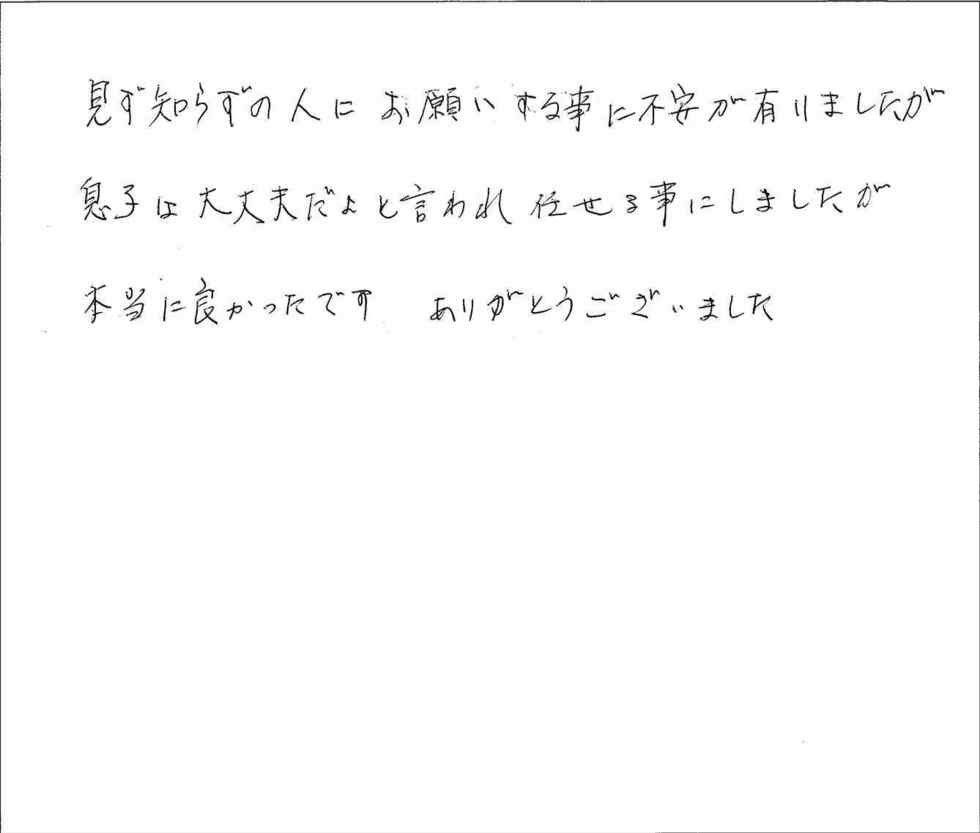 見ず知らずの人にお願いする事に不安が有りましたが
息子は大丈夫だよと言われ任せる事にしましたが
本当に良かったです　ありがとうございました